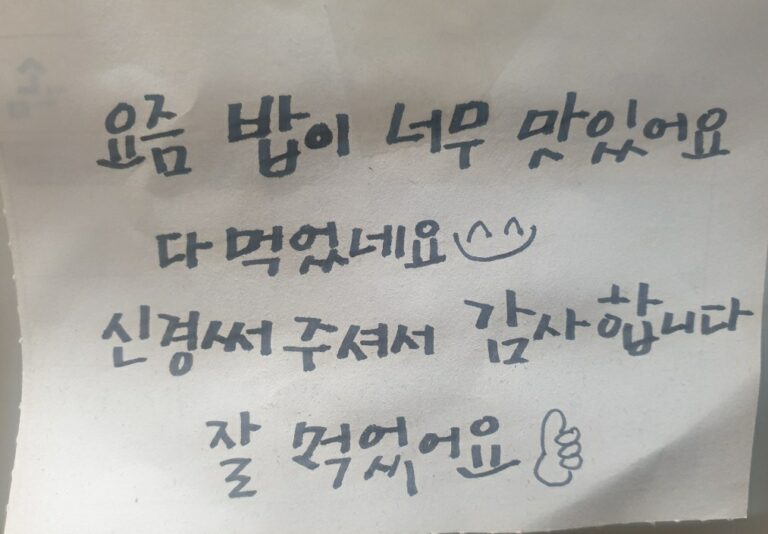 요즘 밥이 너무 맛있어요
다 먹었네요^^
신경써 주셔서 감사합니다
잘 먹었어요